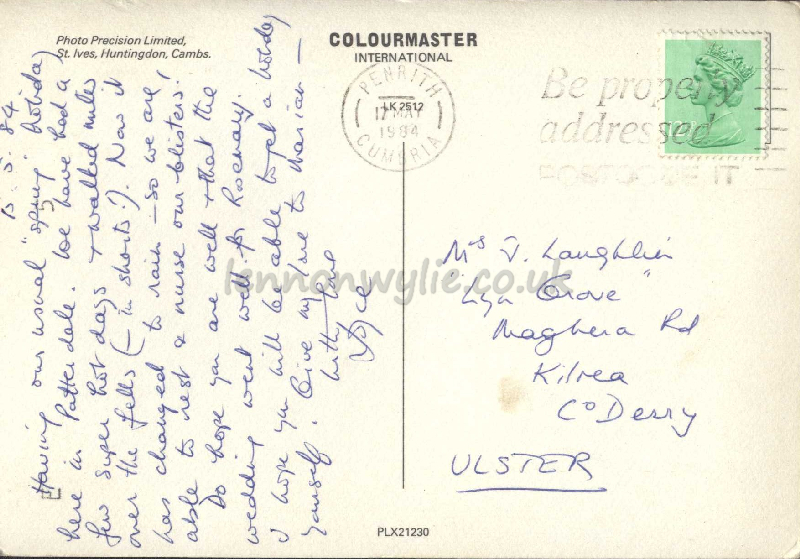 Photo Precision Limited,
St. Ives, Huntingdon, Cambs.
COLOURMASTER
INTERNATIONAL
LK 2512
PENRITH
17 MAY
1984
CUMBRIA
Be properly
addressed
POSTCODE IT
15.5.84
Having our usual "spring" holiday
here in Patterdale. We have had a
few super hot days & walked miles
over the fells (- in shorts!). Now it
has changed to rain - so we are
able to rest & nurse our blisters!
Do hope you are well & that the
wedding went well for Rosemary.
I hope you will be able to get a holiday
yourself. Give my love to Marian -
With love
Joyce
Mrs J. Laughlin
"Lyn Grove"
Maghera Rd
Kilrea
Co Derry
ULSTER
PLX21230
lennonwylie.co.uk